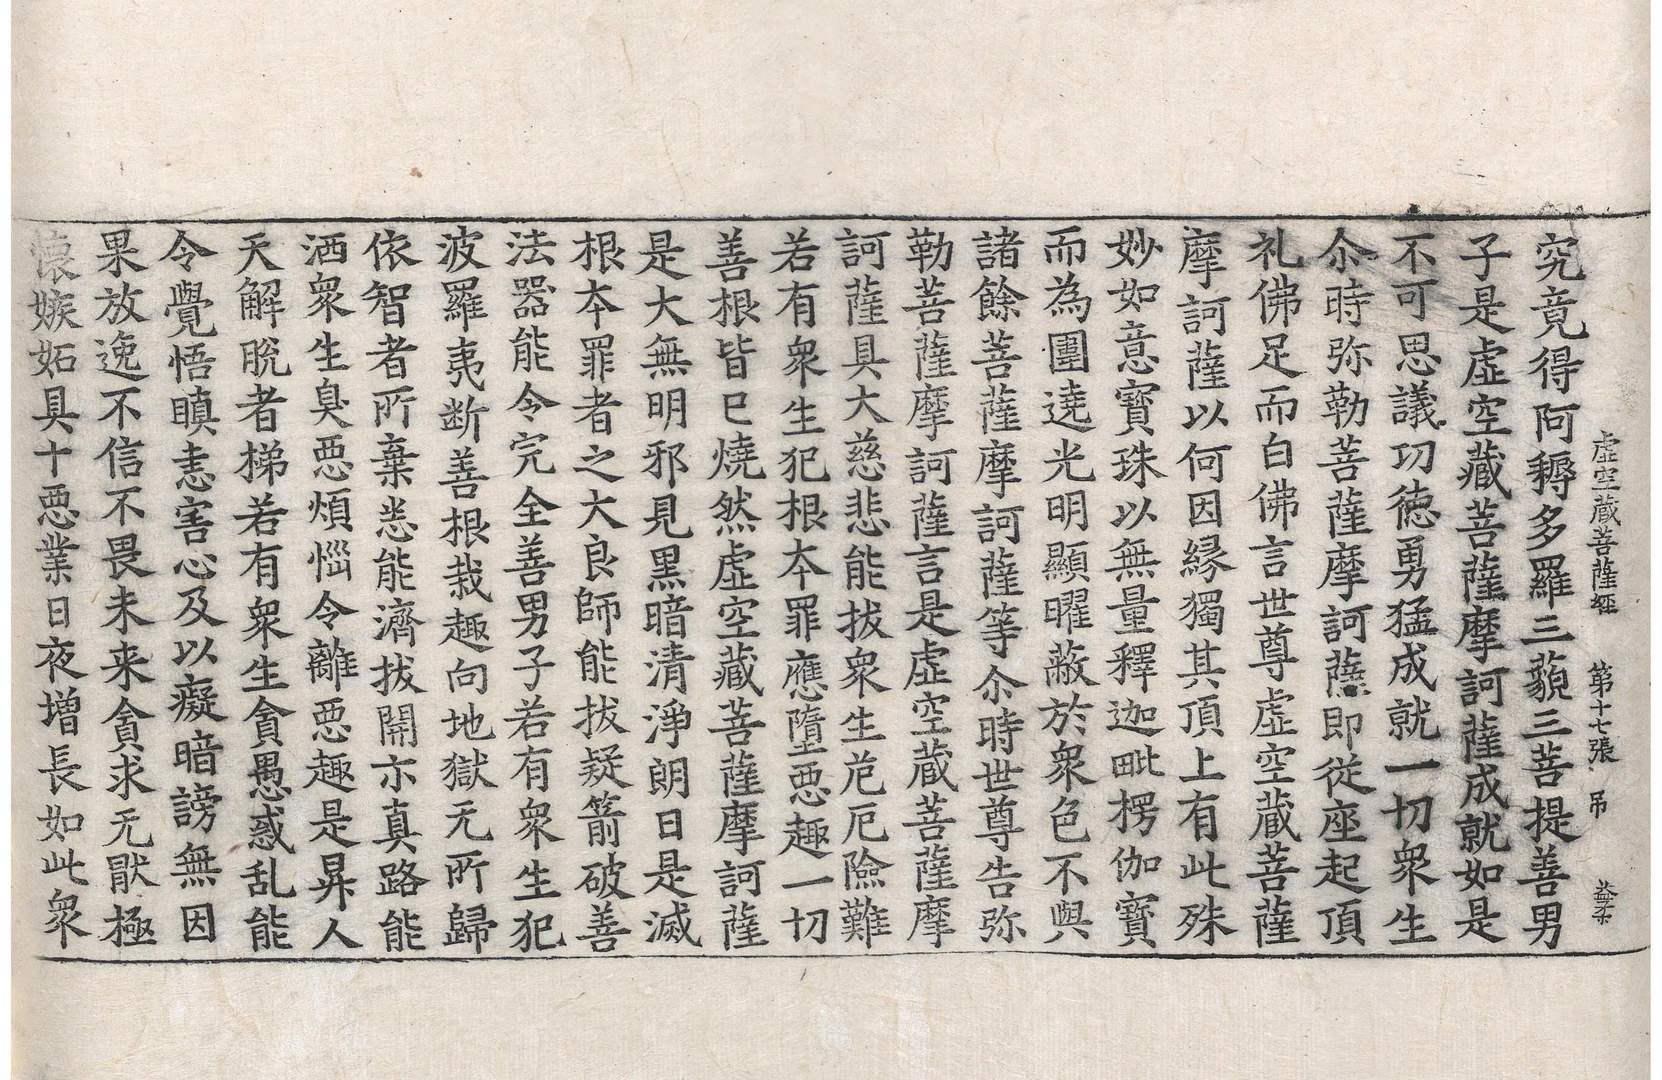 虛空藏菩薩經　第十七張　吊
究竟得阿耨多羅三藐三菩提善男
子是虛空藏菩薩摩訶薩成就如是
不可思議功德勇猛成就一切衆生
尒時弥勒菩薩摩訶薩即從座起頂
礼佛足而白佛言世尊虛空藏菩薩
摩訶薩以何因緣獨其頂上有此殊
妙如意寶珠以無量釋迦毗楞伽寶
而為圍遶光明顯曜蔽於衆色不與
諸餘菩薩摩訶薩等尒時世尊告弥
勒菩薩摩訶薩言是虛空藏菩薩摩
訶薩具大慈悲能拔衆生危厄險難
若有衆生犯根本罪應墮惡趣一切
善根皆已燒然虛空藏菩薩摩訶薩
是大無明邪見黑暗清淨朗日是滅
根本罪者之大良師能拔疑箭破善
法器能令完全善男子若有衆生犯
波羅夷断善根栽趣向地獄无所歸
依智者所棄悉能濟拔開示真路能
洒衆生臭惡煩惱令離惡趣是昇人
天解脫者梯若有衆生貪愚惑乱能
令覺悟瞋恚害心及以癡暗謗無因
果放逸不信不畏未来貪求无猒極
懷嫉妬具十惡業日夜增長如此衆